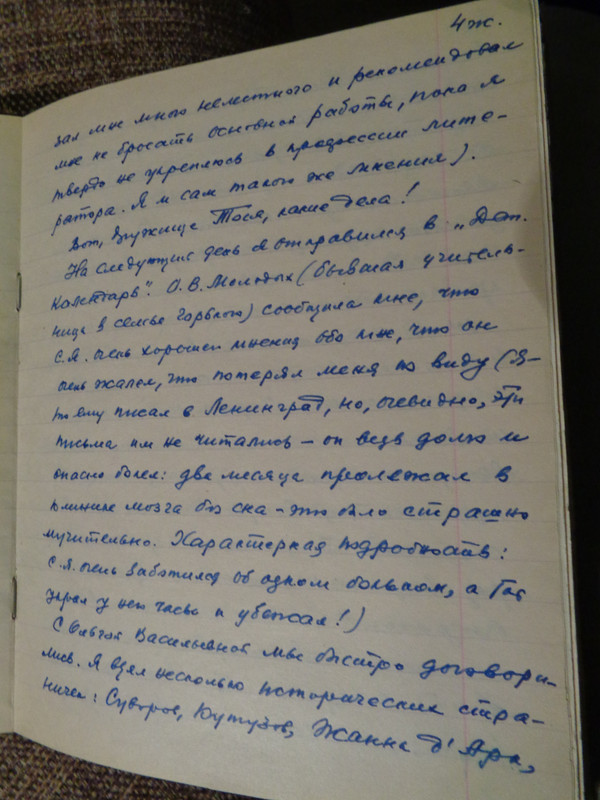 4ж.
зал мне много лестного и рекомендовал
мне не бросать основной работы, пока я
твердо не укреплюсь в профессии лите-
ратора. Я и сам такого же мнения).
Вот, дружище Тося, какие дела!
На следующий день я отправился в „Дет.
календарь". О.В. Молодых (бывшая учитель-
ница в семье Горького) сообщила мне, что
С.Я. очень хорошего мнения обо мне, что он
очень жалел, что потерял меня из виду (Я-
то ему писал в Ленинград, но, очевидно, эти
письма им не читались – он ведь долго и
опасно болел: два месяца пролежал в
клинике мозга без сна – это было страшно
мучительно. Характерная подробность:
С.Я. очень заботился об одном больном, а тот
украл у него часы и убежал!)
С Ольгой Васильевной мы быстро договори-
лись. Я взял несколько исторических стра-
ничек: Суворов, Кутузов, Жанна д'Арк,